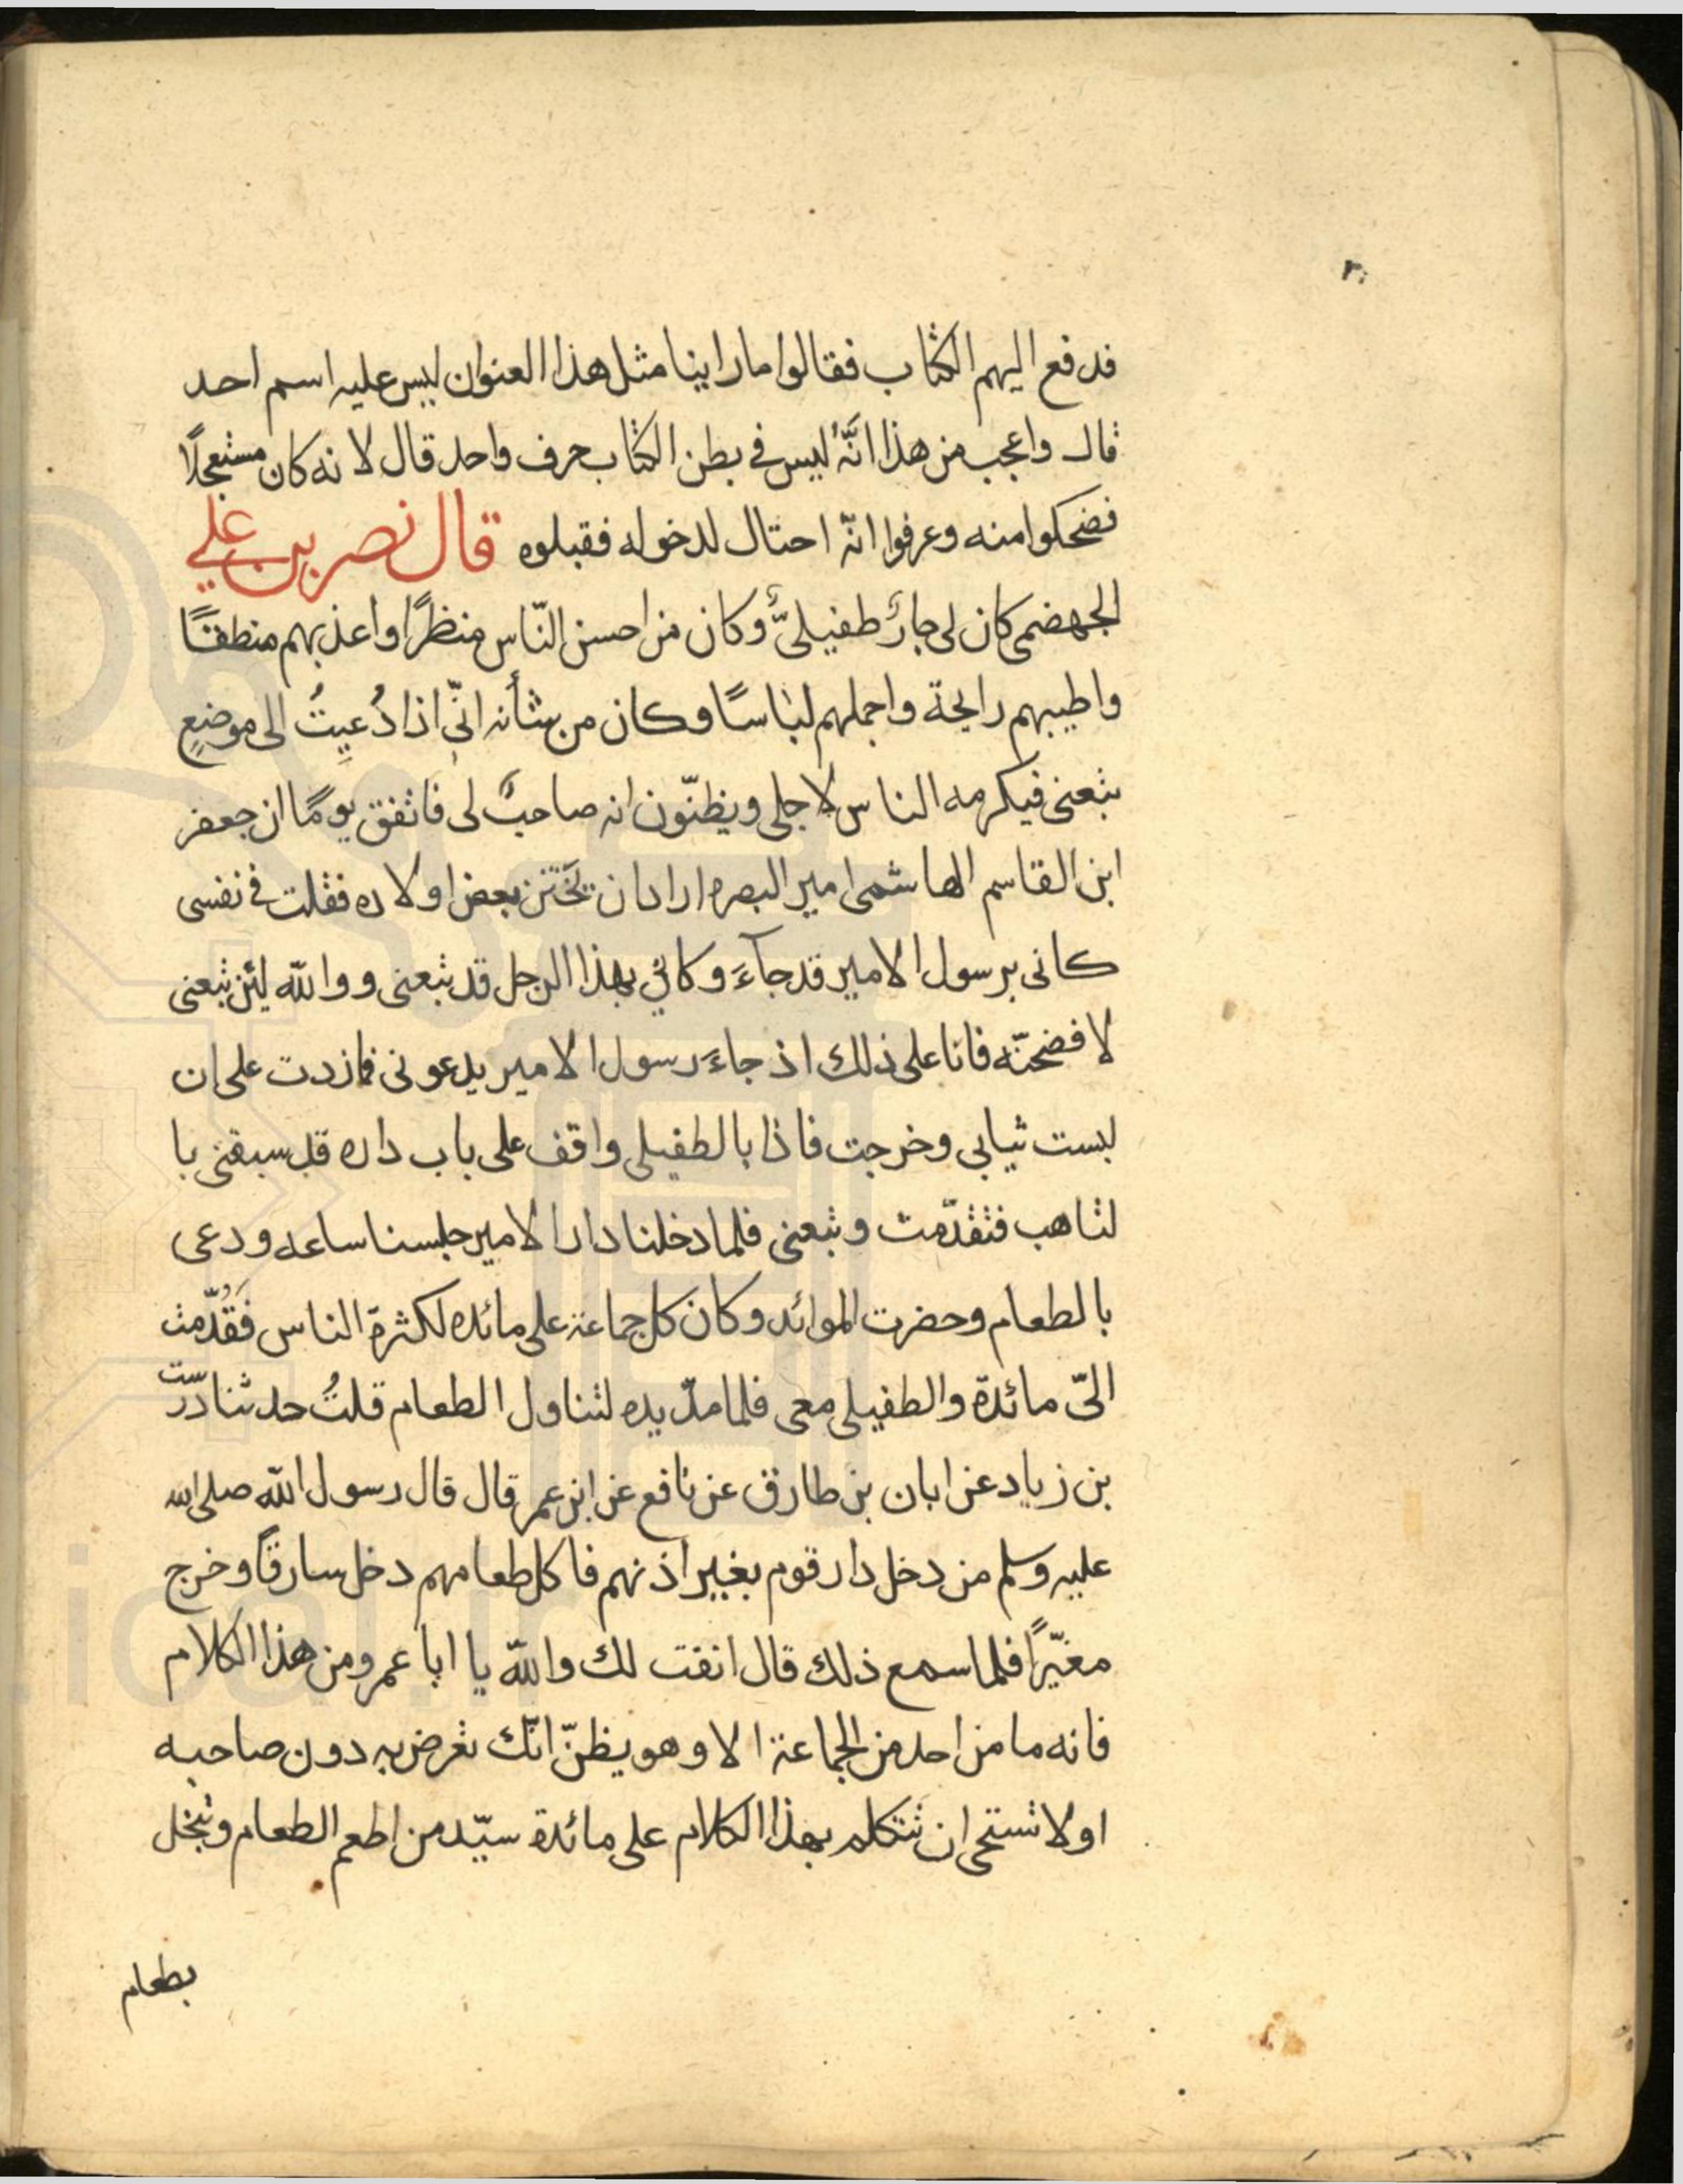 ٢٠
فدفع اليهم الكتاب فقالوا ماراينا مثل هذا العنوان ليس عليه اسم احد
قال واعجب من هذا انّه ليس فى بطن الكتاب حرف واحد قال لانه كان مستعجلًا
فضحكوا منه وعرفوا انّه احتال لدخوله فقبلوه قال نصر بن علي
الجهضمى كان لى جارٌ طفيلىٌّ وكان من احسن النّاس منظرًا واعذبهم منطقًا
واطيبهم رايحة واجملهم لباسًا وكان من شأنه انّى اذا دُعيتُ الى موضعٍ
تبعنى فيكرمه الناس لاجلى ويظنّون انه صاحبٌ لى فاتفق يومًا ان جعفر
ابن القاسم الهاشمى امير البصره اراد ان يختن بعض اولاده فقلت فى نفسى
كانى برسول الامير قد جآءَ وكانى بهذا الرجل قد تبعنى ووالله لئن تبعنى
لافضحنّه فانا على ذلك اذ جاءَ رسول الامير يدعونى فمازدت على ان
لبست ثيابى وخرجت فاذا بالطفيلى واقف على باب داره قد سبقنى با
لتاهب فتقدّمت وتبعنى فلما دخلنا دار الامير جلسنا ساعه ودعى
بالطعام وحضرت الموائد وكان كل جماعة على مائده لكثرة الناس فَقُدّمت
الىّ مائدة والطفيلى معى فلما مدّ يده لتناول الطعام قلتُ حدثنا درّست
بن زياد عن ابان بن طارق عن نافع عن ابن عمر قال قال رسول الله صلى الله
عليه وسلم من دخل دار قوم بغير اذنهم فاكل طعامهم دخل سارقًا وخرج
مغيّرًا فلما سمع ذلك قال انفت لك والله يا ابا عمرو من هذا الكلام
فانه ما من احد من الجماعة الا وهو يظنّ انّك تعرض به دون صاحبه
اولا تستحى ان تتكلم بهذا الكلام على مائدة سيّد من اطعم الطعام وتبخل
بطعام